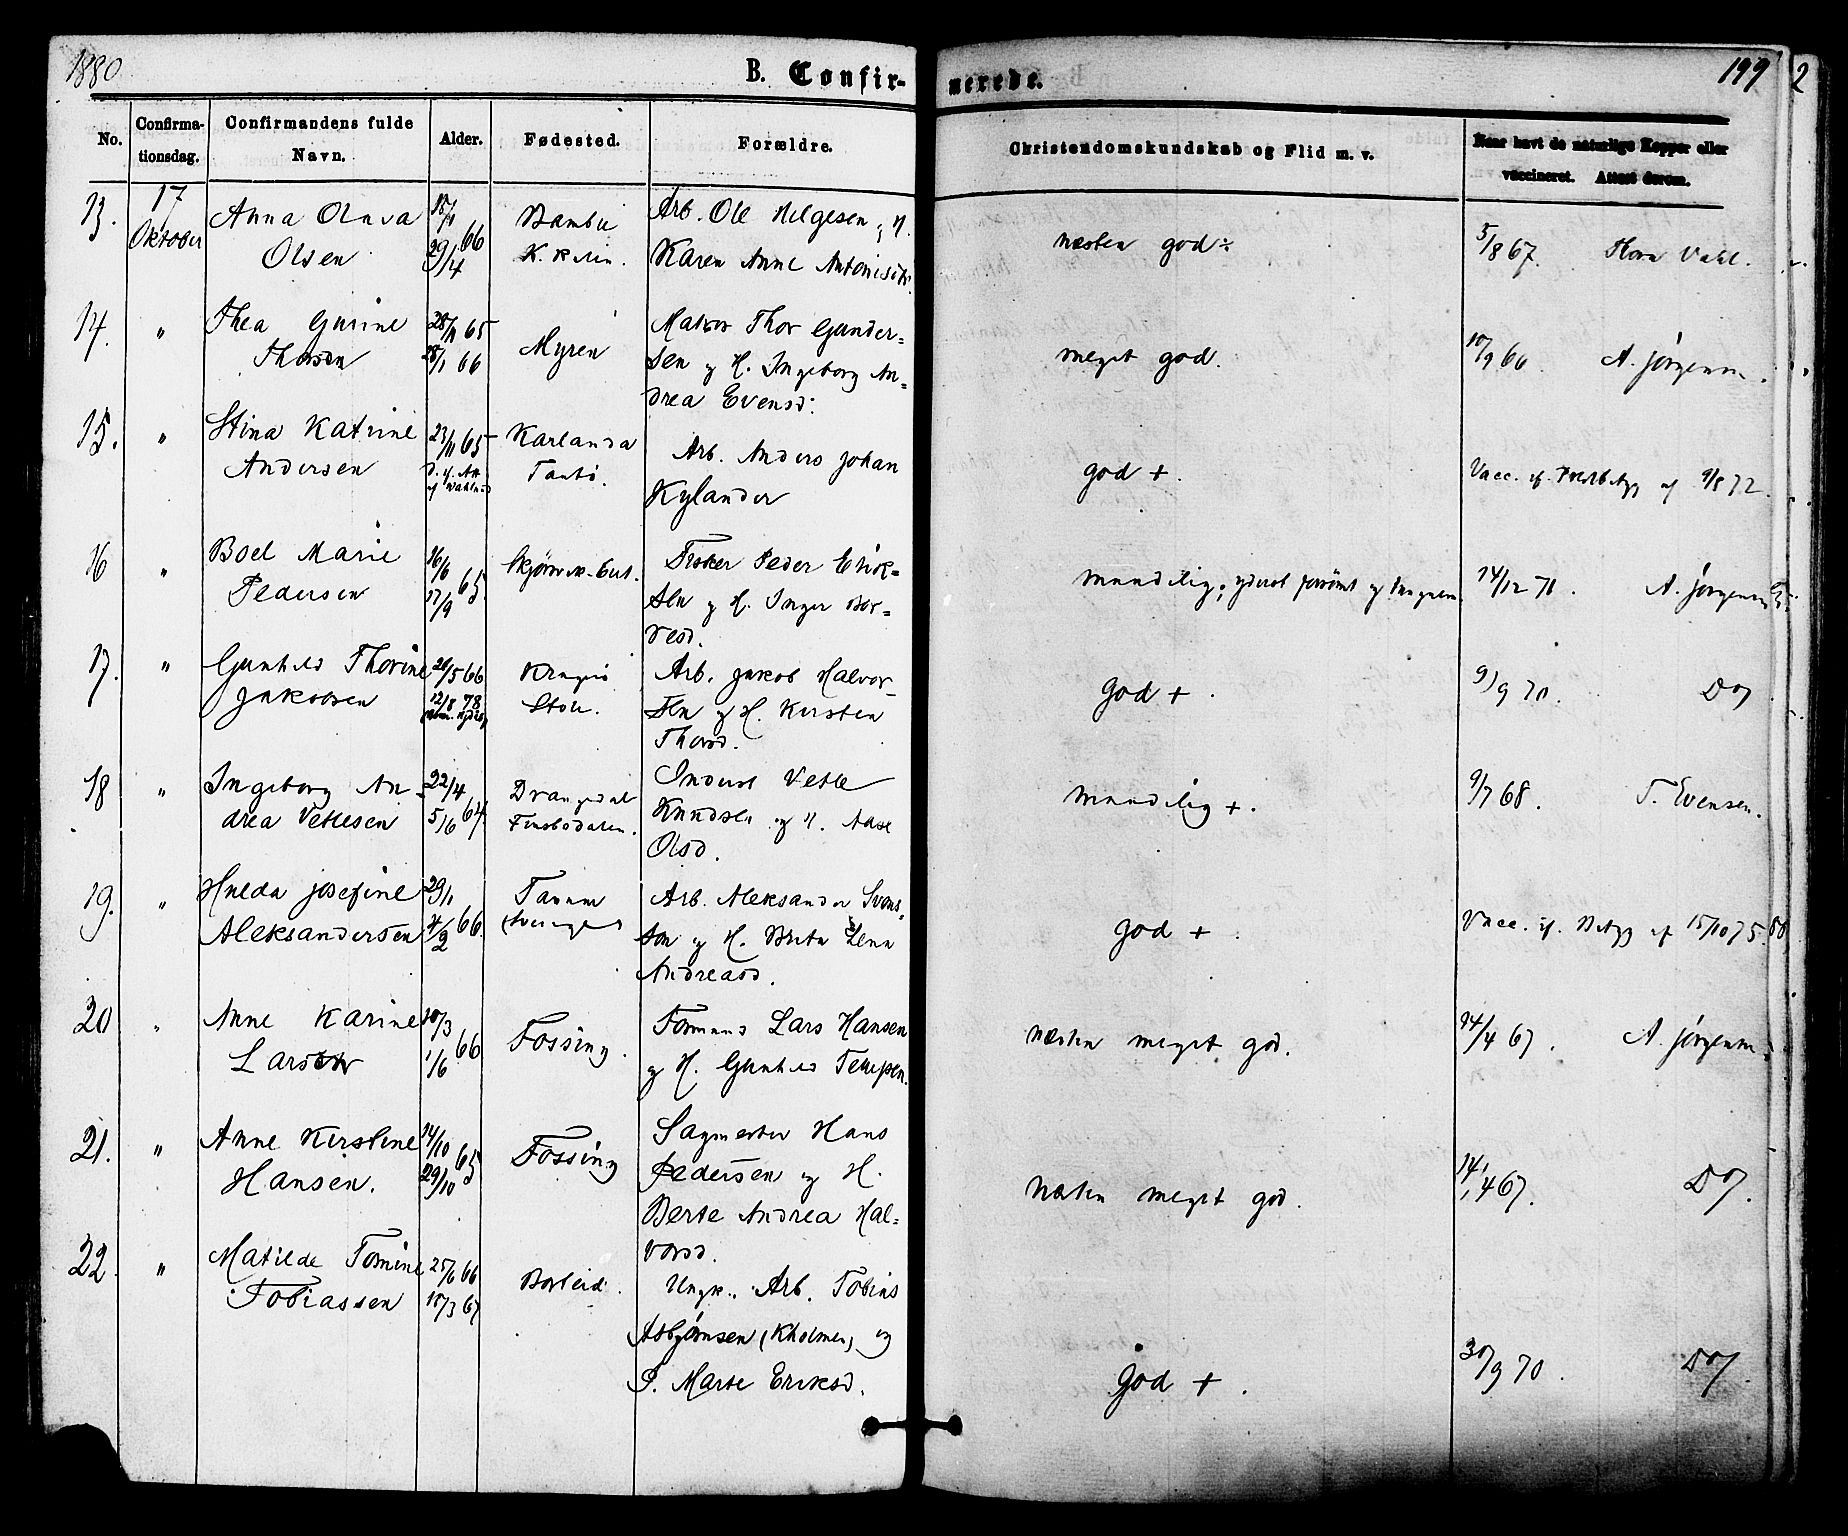 1880
B. Confir-
merede.
199
2
No.
Confirma-
tionsdag.
Confirmandens fulde
Navn.
Alder.
Fødested.
Forældre.
Christendomskundskab og Flid m. v.
Naar havt de naturlige Kopper eller
vaccineret. Attest derom.
13.
17
Oktober
Anna Olava
Olsen
66
29/4
Bamble
Arb. Ole Helgesen og H.
Karen Anne
næsten god
5/8 67.
14.
"
Thea Gurine
Thorsen
28/11 65
28/1 66
Myren
Matros Thor Gunder-
sen og H. Ingeborg An-
drea Evensd.
meget god.
A. Jørgensen
15.
"
Stina Katrine
Andersen
23/11 65
Karlanda
Arb. Anders Johan
Kylander
god +.
Vacc. if. af 9/8 72.
16
"
Boel Marie
Pedersen
16/6
65
17/9
Fisker Peder Erik-
sen og H. Inger Bor-
resd.
maadelig;
14/12 71.
A. Jørgensen
17.
"
Gunhild Thorine
Jakobsen
26/5 66
12/8 78
Kragerø
Arb. Jakob Halvor-
sen og H. Kirsten
Thorsd.
god +.
9/9 70.
Do
18
"
Ingeborg An-
drea Vetlesen
22/4
5/6 64
Drangedal
Inderst Vetle
Knudsen og H. Aase
Olsd.
maadelig +.
9/7 68.
T. Evensen.
19.
"
Hulda Josefine
Aleksandersen
29/1
4/2 66.
Tanum
Arb. Aleksander Svens-
son og H. Brita Lena
Andreasd.
god +.
Vacc. if. af 15/10 75.
20
"
Anne Karine
Larsen
10/3
66
1/6
Fossing.
Formand Lars Hansen
og H. Gunhild
næsten meget god.
14/4 67.
A. Jørgensen
21.
"
Anne Kirstine
Hansen.
14/10
65
29/10
Fossing
Sagmester Hans
Pedersen og H.
Berte Andrea Hal-
vorsd.
næsten meget god.
14/4 67.
Do.
22.
"
Matilde Tomine
Tobiassen
25/6 66
10/3 67
Ungk. Arb. Tobias
Asbjørnsen (Kholmen) og
P. Marte Eriksd.
god +.
30/9 70.
Do.